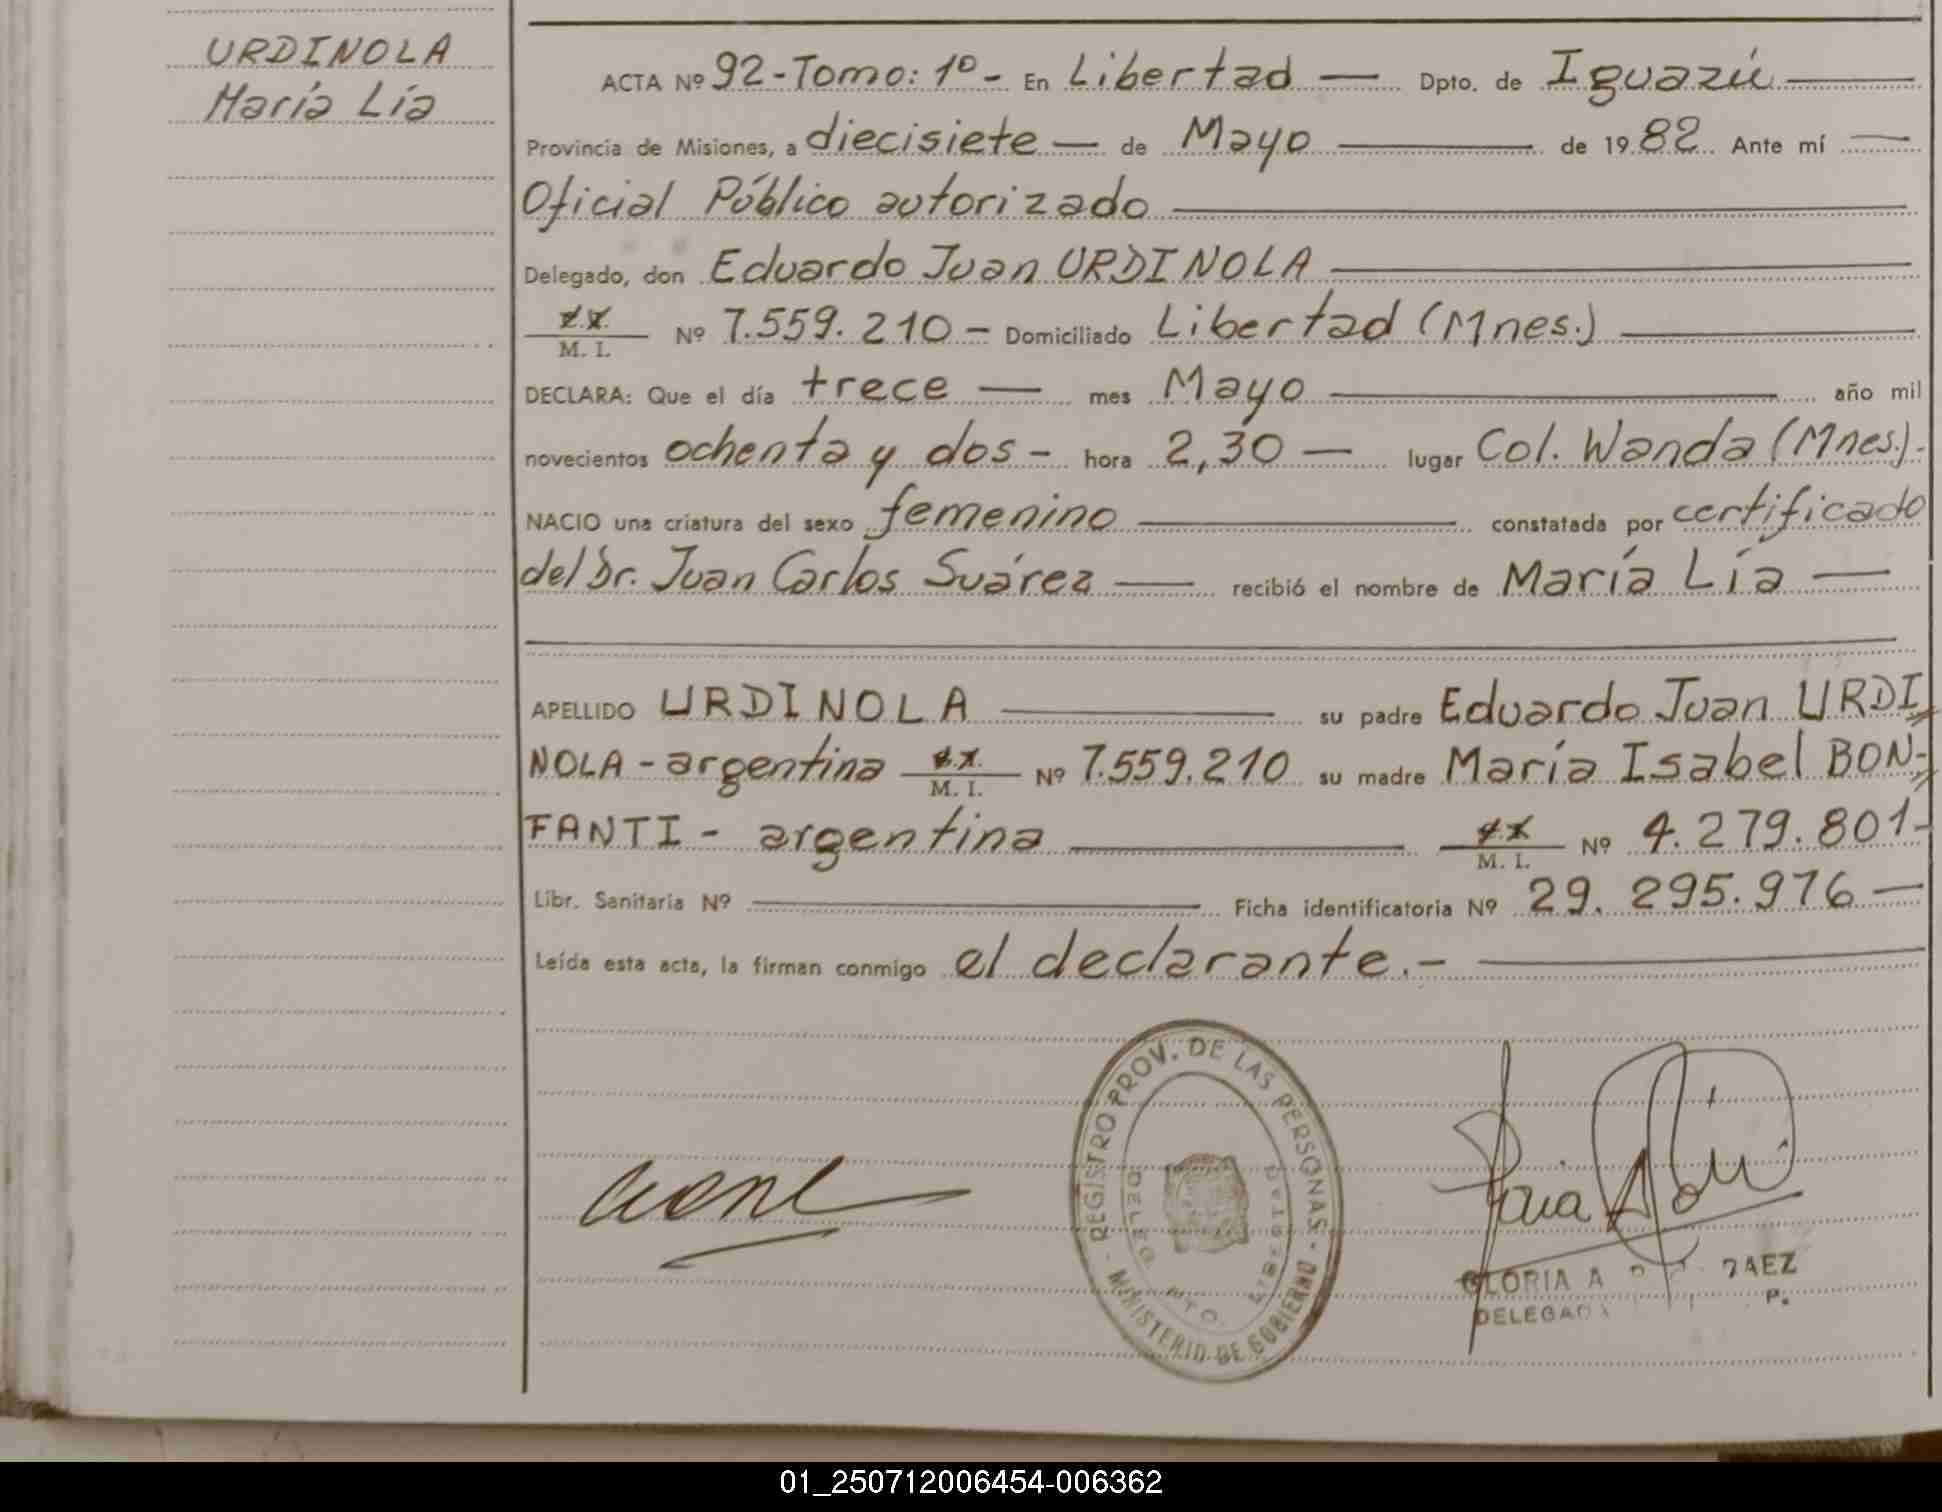 URDINOLA
María Lía
ACTA Nº 92-Tomo: 1º- En Libertad — Dpto. de Iguazú —
Provincia de Misiones, a diecisiete — de Mayo — de 1982. Ante mí —
Oficial Público autorizado —
Delegado, don Eduardo Juan URDINOLA —
M. I. Nº 7.559.210 - Domiciliado Libertad (Mnes.) —
DECLARA: Que el día trece — mes Mayo — año mil
novecientos ochenta y dos - hora 2,30 — lugar Col. Wanda (Mnes.).-
NACIO una criatura del sexo femenino — constatada por certificado
del Dr. Juan Carlos Suárez — recibió el nombre de María Lía —
APELLIDO URDINOLA — su padre Eduardo Juan URDI
NOLA - argentina M. I. Nº 7.559.210 su madre María Isabel BON-
FANTI - argentina — M. I. Nº 4.279.801-
Libr. Sanitaria Nº — Ficha identificatoria Nº 29.295.976 —
Leída esta acta, la firman conmigo el declarante.- —
REGISTRO PROV. DE LAS PERSONAS - MINISTERIO DE GOBIERNO -
GLORIA A
DELEGADA
01_250712006454-006362